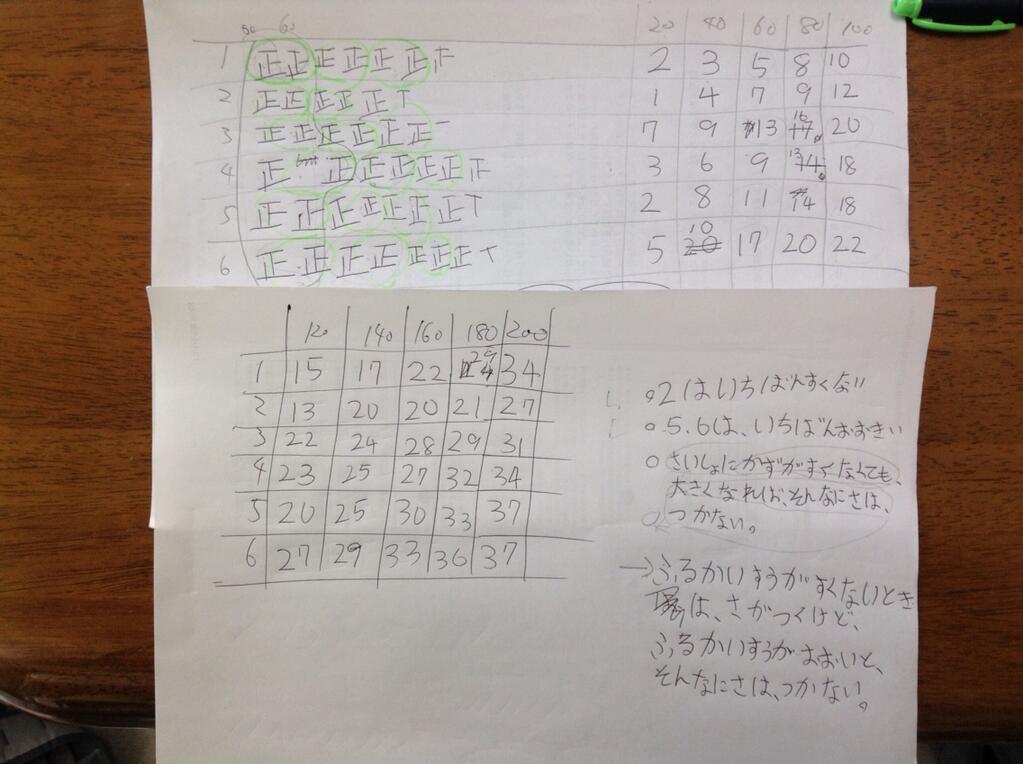 60
20 40 60 80 100
1 正正正正正正下 2 3 5 8 10
2 正正正正正丅 1 4 7 9 12
3 正正正正正正一 7 9 13 16 20
4 正 正正正正正正下 3 6 9 13 18
5 正正正正正正正丅 2 8 11 14 18
6 正正正正正正正丅 5 10 17 20 22
120 140 160 180 200
1 15 17 22 29 34
2 13 20 20 21 27
3 22 24 28 29 31
4 23 25 27 32 34
5 20 25 30 33 37
6 27 29 33 36 37
○2はいちばんすくない
○5.6は、いちばんおおきい
○さいしょにかずがすくなくても、
大きくなれば、そんなにさは、
つかない。
→ふるかいすうがすくないとき
は、さがつくけど、
ふるかいすうがおおいと、
そんなにさは、つかない。